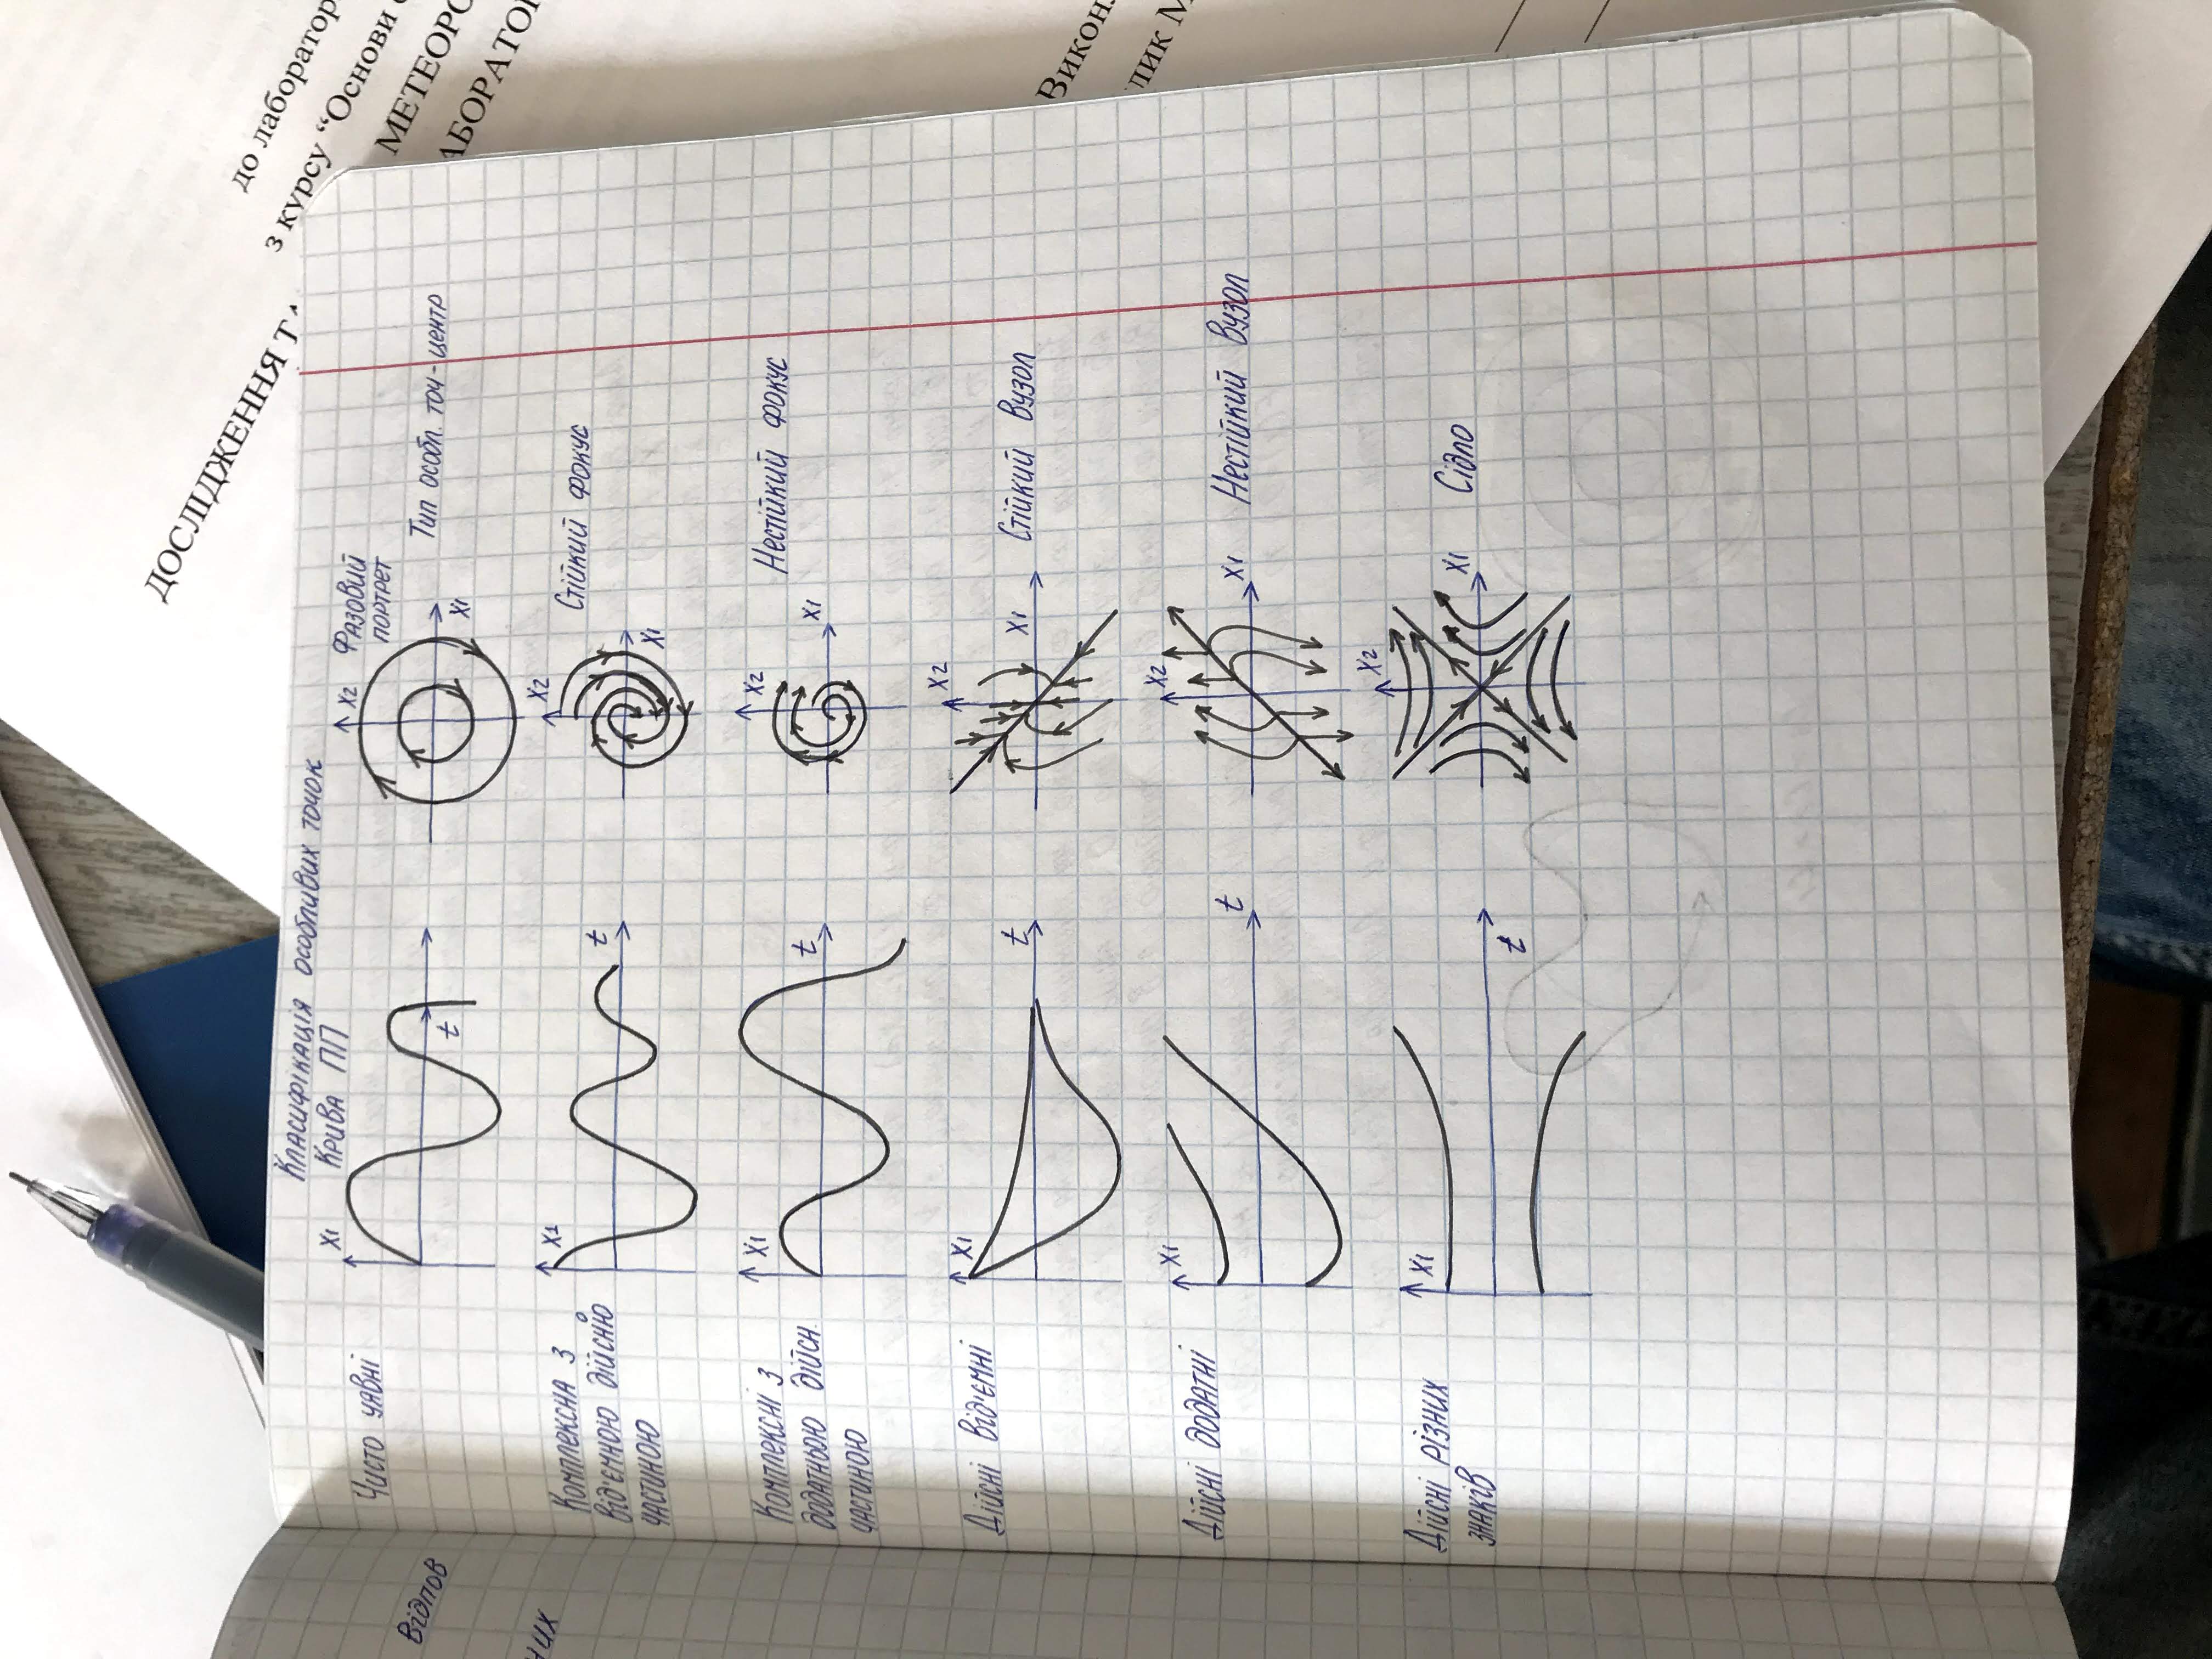 Класифікація особливих точок
Крива ПП
Фазовий
портрет
Чисто уявні
x1
t
x2
x1
Тип особл. точ-центр
Комплексна з
від'ємною дійсною
частиною
x1
t
x2
x1
Стійкий фокус
Комплексні з
додатньою дійсн.
частиною
x1
t
x2
x1
Нестійкий фокус
Дійсні від'ємні
x1
t
x2
x1
Стійкий вузол
Дійсні додатні
x1
t
x2
x1
Нестійкий вузол
Дійсні різних
знаків
x1
t
x2
x1
Сідло
Відпов
них
ДОСЛІДЖЕННЯ
до лаборатор
з курсу “Основи
МЕТЕОРО
АБОРАТО
Викон
лик М